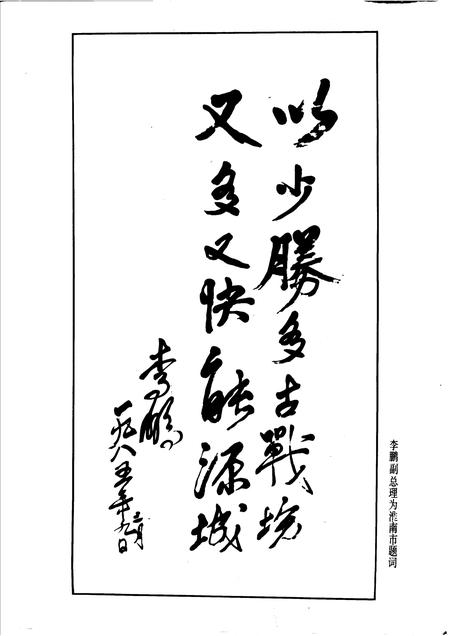 李鹏副总理为淮南市题词
以少勝多古戰场
又多又快能源城
李鹏
一九八五年